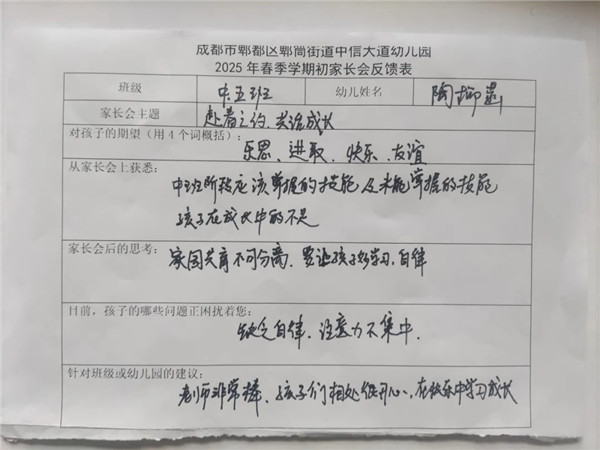 成都市郫都区郫筒街道中信大道幼儿园
2025年春季学期初家长会反馈表
班级 中五班 幼儿姓名 陶柳
家长会主题 赴春之约,共话成长
对孩子的期望(用4个词概括):
乐思、进取、快乐、友谊
从家长会上获悉:
中班阶段应该掌握的技能及未能掌握的技能
孩子在成长中的不足
家长会后的思考:
家园共育不可分离,要让孩子学习,自律
目前,孩子的哪些问题正困扰着您:
缺乏自律,注意力不集中.
针对班级或幼儿园的建议:
老师非常棒、孩子们相处很开心、在快乐中学习成长